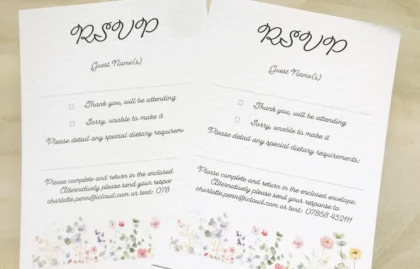 RSVP
Guest Name(s)
Thank you, will be attending
Sorry, unable to make it
Please detail any special dietary requirem
Please complete and return in the enclosed
Alternatively please send your respo
charlotte.penn@icloud.com or text: 078
RSVP
Guest Name(s)
Thank you, will be attending
Sorry, unable to make it
Please detail any special dietary requirements:
Please complete and return in the enclosed envelope.
Alternatively please send your response to
charlotte.penn@icloud.com or text: 07808